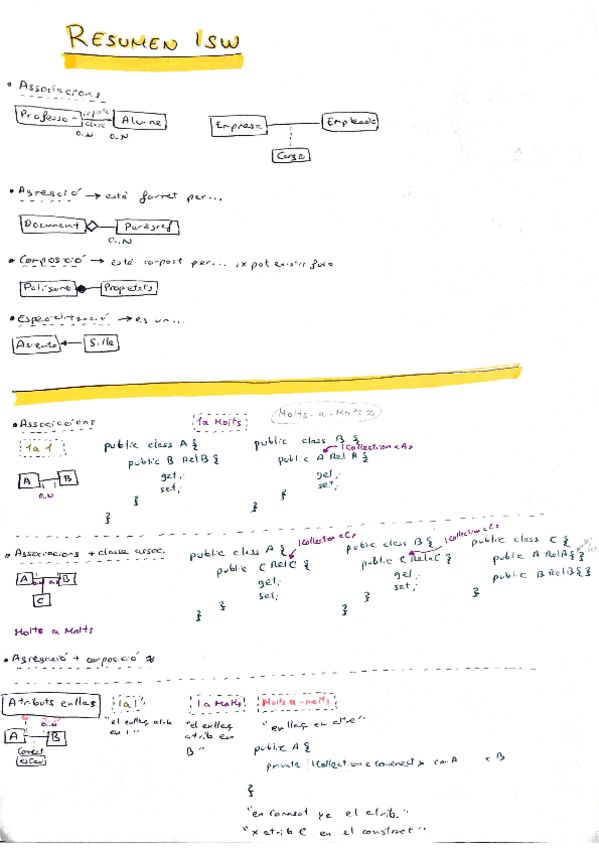 RESUMEN ISW
• Associacions
Professo
Alumne
0..N 0..N
Empresa
Empleado
Cargo
• Agregació → està format per...
Document
Paràgraf
0..N
• Composició → està compost per... ; x pot existir fora
Polígono
• Especialització → es un...
Asiento
Silla
• Associacions
1 a Moits
Moits-a-Moits
1 a 1
public class A {
public B RelB {
get;
set;
}
}
public class B {
ICollection<A>
public A RelA {
get;
set;
}
}
A
B
0..N
• Associacions + classe assoc.
public class A {
ICollection<C>
public C RelC {
get;
set;
}
}
public class B {
ICollection<C>
public C RelC {
get;
set;
}
}
public class C {
public A RelA {}
public B RelB {}
}
A
B
C
Moits a Moits
• Agregació + composició
Atributs enllaç
1 a 1
1 a Moits
Moits-a-moits
"el enllaç atrib
en 1"
"el enllaç
atrib en
B"
"enllaç en altre"
0..N
A
B
public A {
private ICollection
}
"en connect ye el atrib."
"x atrib C en el construct"